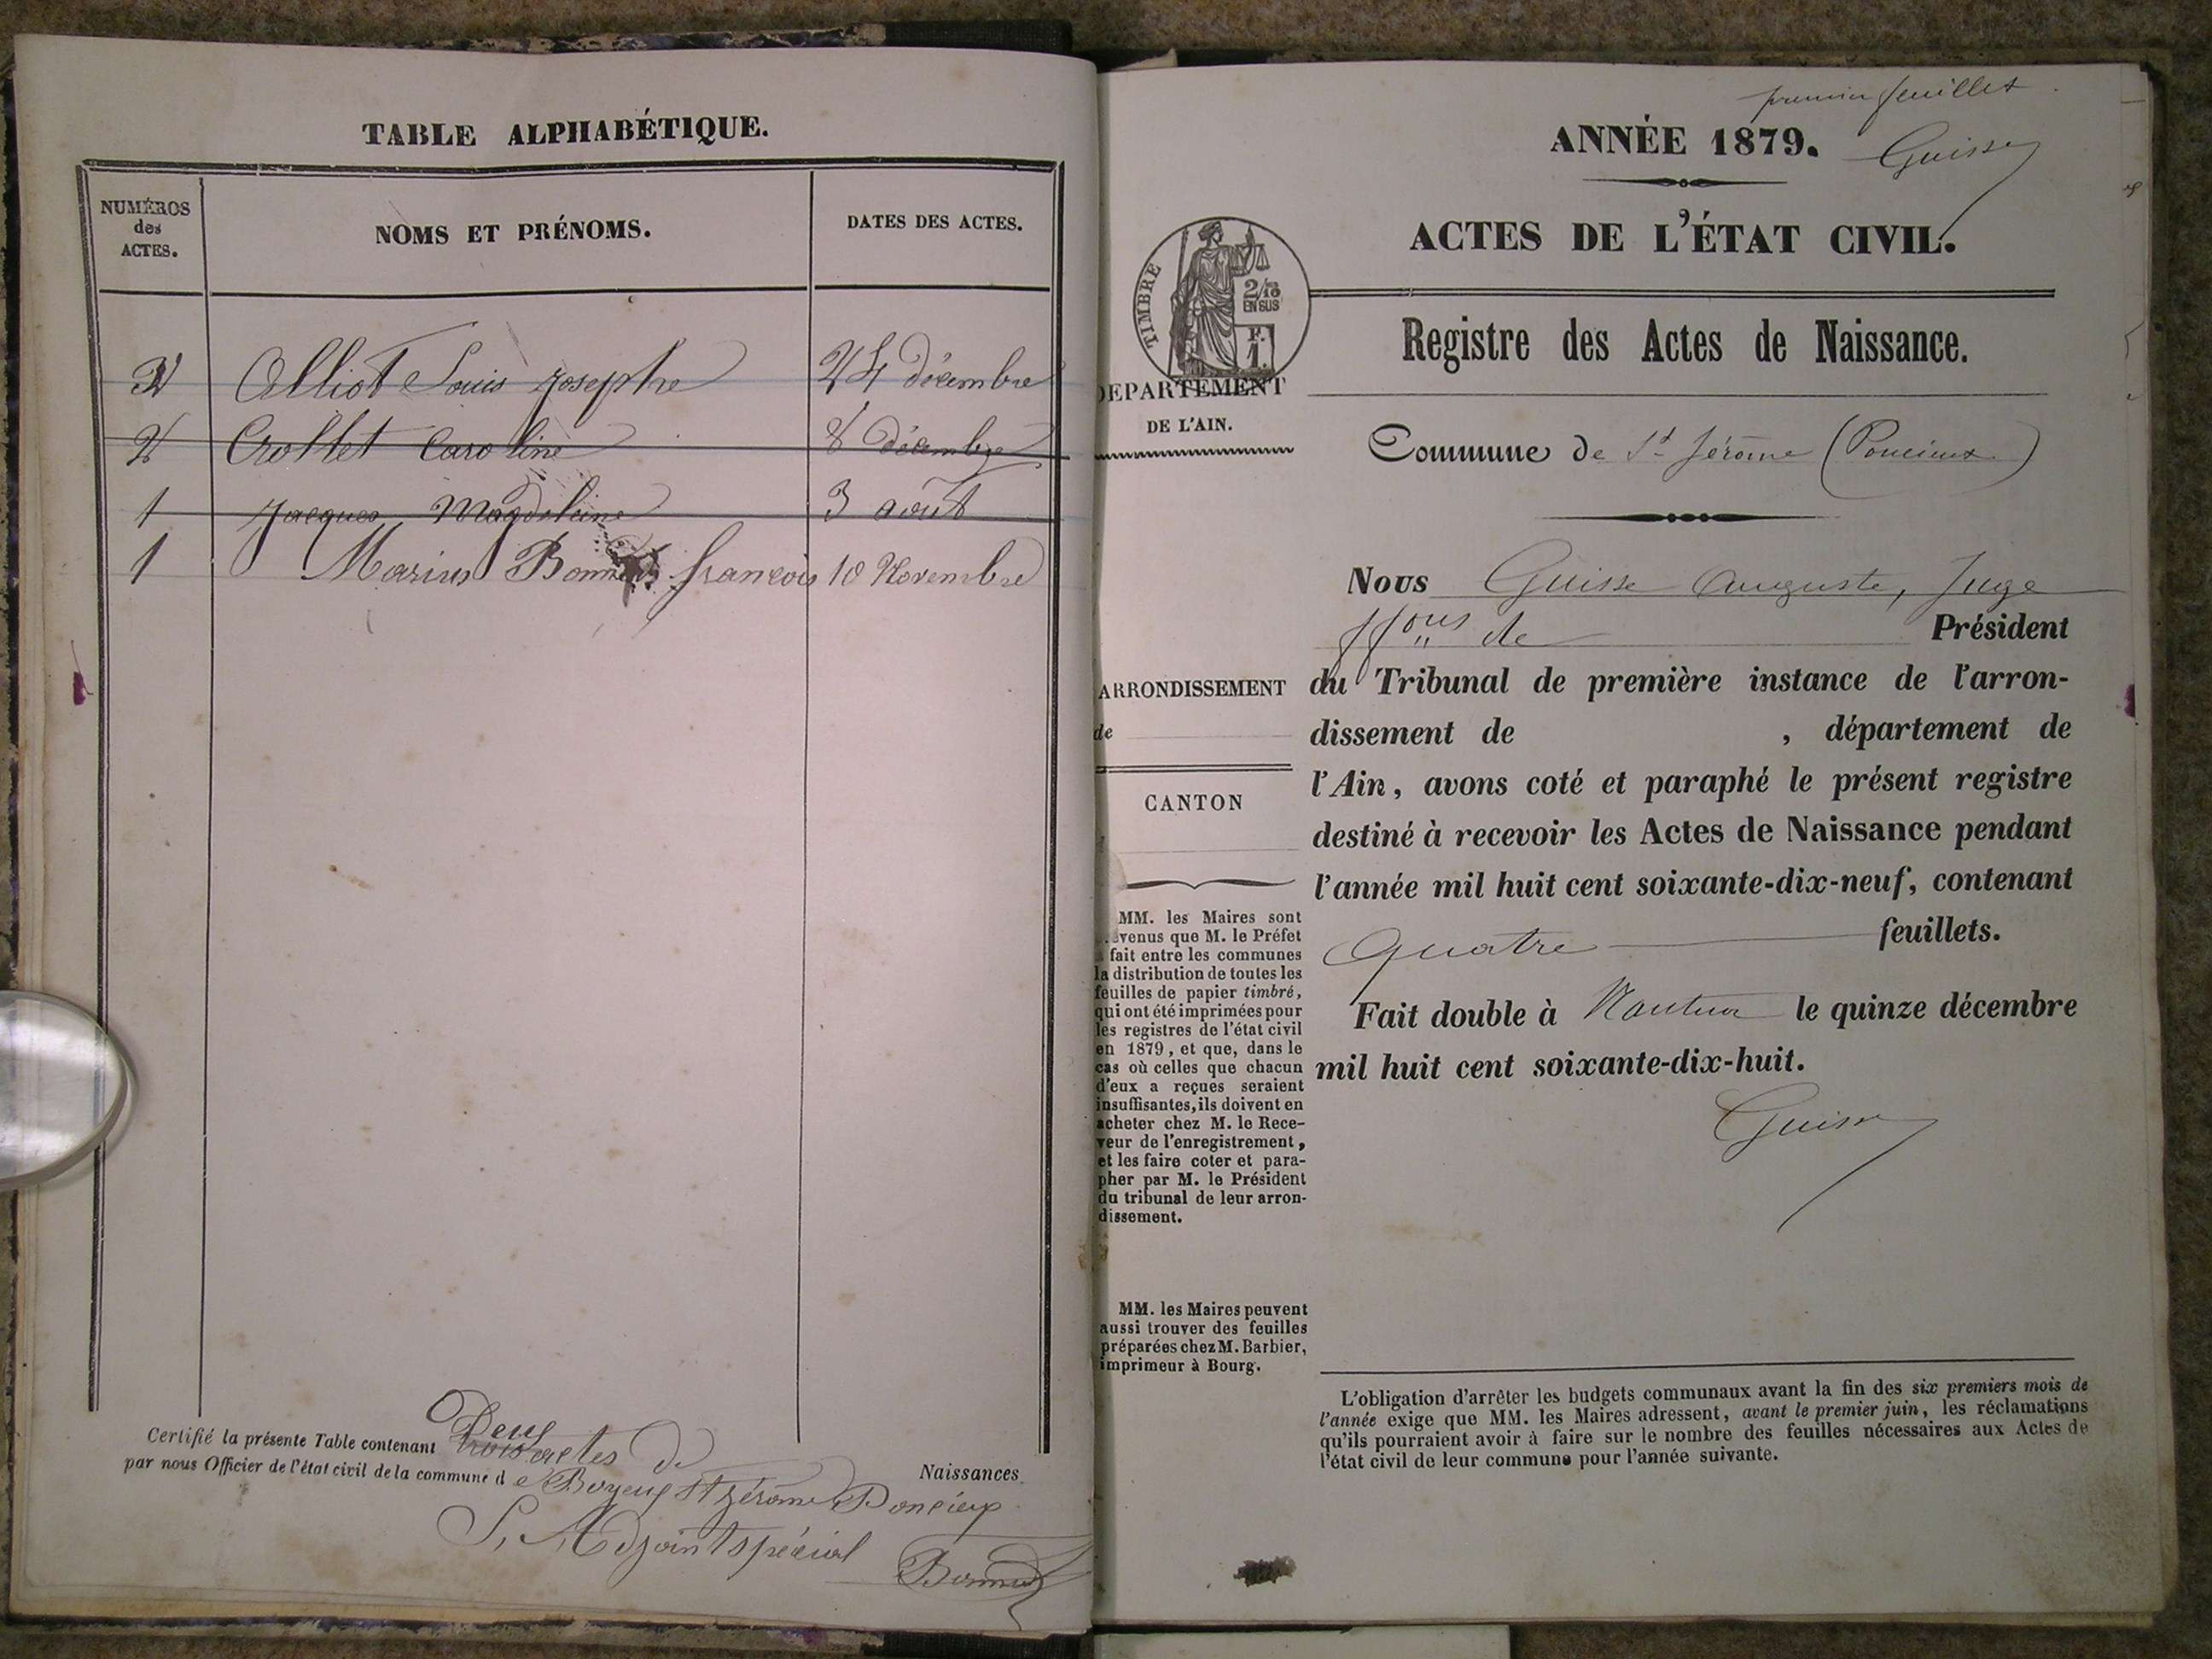 TABLE ALPHABÉTIQUE.
NUMÉROS
des
ACTES.
NOMS ET PRÉNOMS.
DATES DES ACTES.
Alliot Louis Josephe 24 décembre
2 Crollet Caroline 8 décembre
1 Jacques Magdeleine 3 août
1 Marius Bonnet françois 10 Novembre
Deux
Certifié la présente Table contenant trois actes de Naissances
par nous Officier de l'état civil de la commune d e Boyeux St Jérôme Poncieux
L'Adjoint spécial
Bonnet
premier feuillet
ANNÉE 1879.
Guisse
ACTES DE L'ÉTAT CIVIL.
TIMBRE
2/10
EN SUS
F.
1.
Registre des Actes de Naissance.
DEPARTEMENT
DE L'AIN.
Commune de St Jérôme (Poncieux)
Nous Guisse Auguste, Juge
ffons de Président
du Tribunal de première instance de l'arron-
dissement de , département de
l'Ain, avons coté et paraphé le présent registre
destiné à recevoir les Actes de Naissance pendant
l'année mil huit cent soixante-dix-neuf, contenant
quatre feuillets.
Fait double à Nantua le quinze décembre
mil huit cent soixante-dix-huit.
Guisse
ARRONDISSEMENT
de
CANTON
MM. les Maires sont
venus que M. le Préfet
fait entre les communes
la distribution de toutes les
feuilles de papier timbré,
qui ont été imprimées pour
les registres de l'état civil
en 1879, et que, dans le
cas où celles que chacun
d'eux a reçues seraient
insuffisantes, ils doivent en
acheter chez M. le Rece-
veur de l'enregistrement,
et les faire coter et para-
pher par M. le Président
du tribunal de leur arron-
dissement.
MM. les Maires peuvent
aussi trouver des feuilles
préparées chez M. Barbier,
imprimeur à Bourg.
L'obligation d'arrêter les budgets communaux avant la fin des six premiers mois de
l'année exige que MM. les Maires adressent, avant le premier juin, les réclamations
qu'ils pourraient avoir à faire sur le nombre des feuilles nécessaires aux Actes de
l'état civil de leur commune pour l'année suivante.